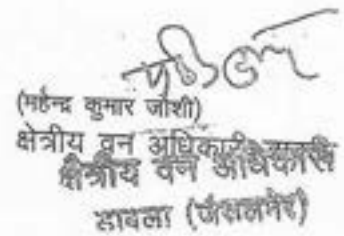 (महेन्द्र कुमार जोशी)
क्षेत्रीय वन अधिकारी
क्षेत्रीय वन अधिकारी
डाबला (जैसलमेर)